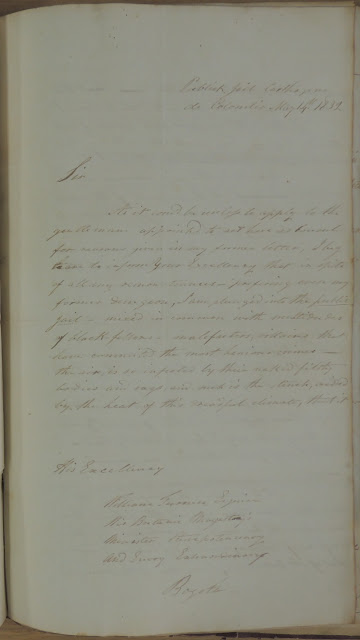 Publick Jail Carthagena
de Colombia May 14th 1831.
Sir
As it would be useless to apply to the
gentleman appointed to act here as Consul
for reasons given in my former letter, I beg
leave to inform Your Excellency that in spite
of all my
former I am plunged into the public
jail – mixed in common with multitudes
of black fellows – malefactors, villains that
have committed the most heinous crimes –
the air is so infected by their naked filthy
bodies and rags, and is the stench, excited
by the heat of this climate, that it
His Excellency
William Turner Esquire
His Britannic Majesty's
Minister Plenipotentiary
and Envoy Extraordinary
Bogota